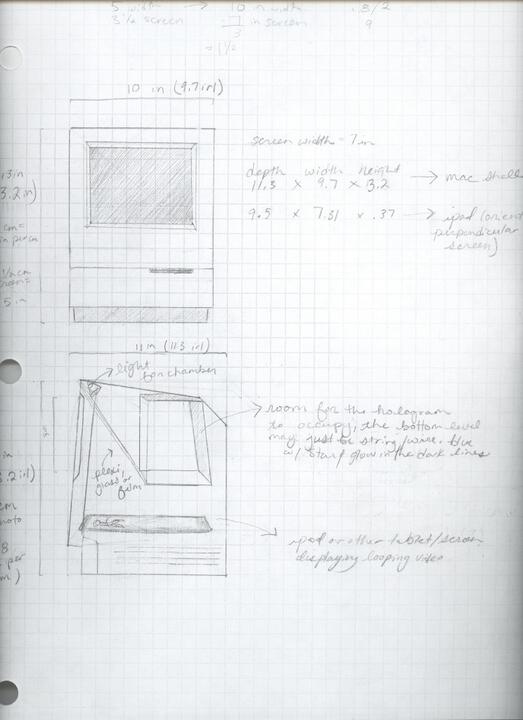 5 width → 10 in width
3 1/2 screen 7 in screen
3
= 1 1/2
9
10 in (9.7 irl)
screen width = 7in
depth width height
11.3 x 9.7 x 13.2 → mac shell
9.5 x 7.31 x .37 → ipad (orient
perpendicular
screen)
3.2 in)
cm =
in per cm
5 in
11 in (11.3 irl)
light
for chamber
room for the hologram
to occupy, the bottom level
may just be string/wire. blue
w/ starf glow in the dark lines
plexi,
glass or
film
ipad or other tablet/screen
displaying looping video
in
.2 irl)
cm
8
per